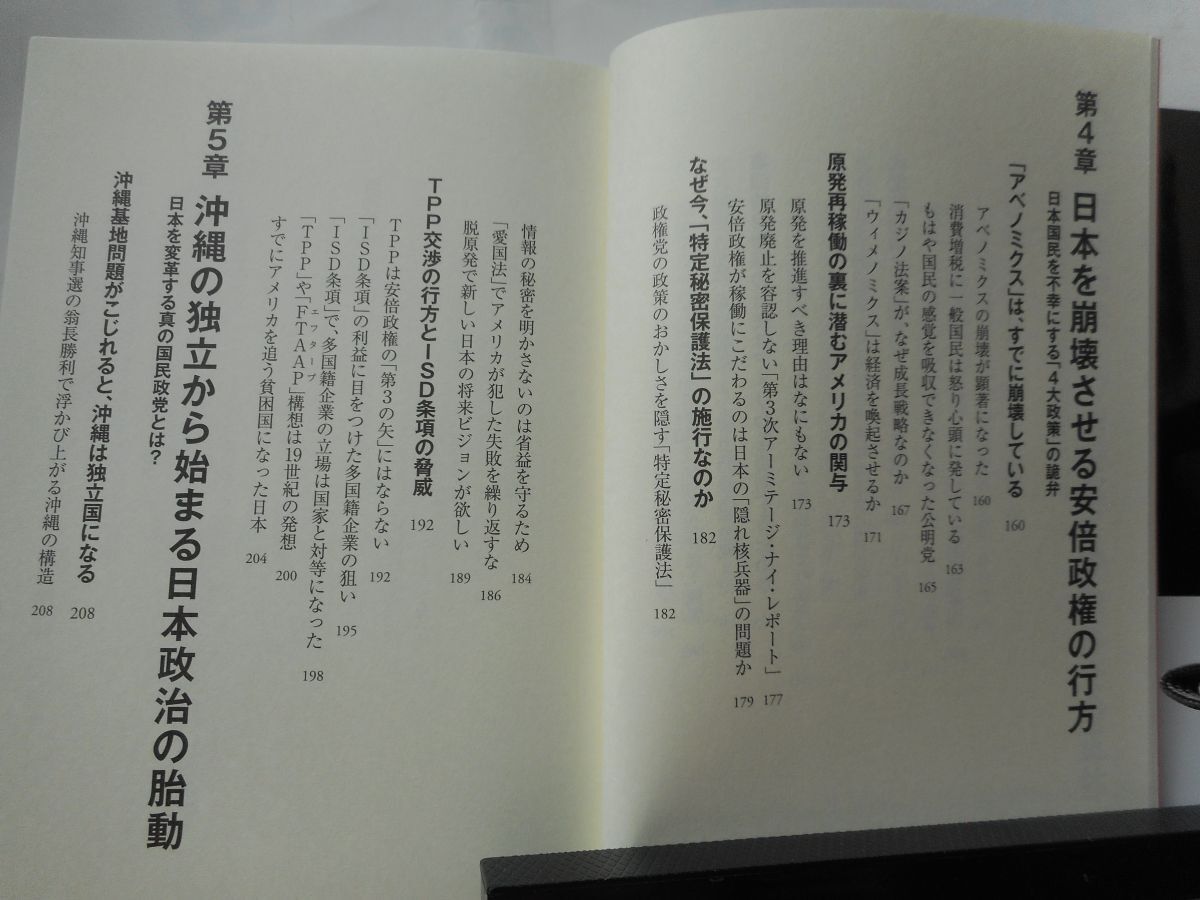 第4章 日本を崩壊させる安倍政権の行方
日本国民を不幸にする「4大政策」の詭弁
「アベノミクス」は、すでに崩壊している 160
アベノミクスの崩壊が顕著になった 160
消費増税に一般国民は怒り心頭に発している 163
もはや国民の感覚を吸収できなくなった公明党 165
「カジノ法案」が、なぜ成長戦略なのか 167
「ウィメノミクス」は経済を喚起させるか 171
原発再稼働の裏に潜むアメリカの関与 173
原発を推進すべき理由はなにもない 173
原発廃止を容認しない「第3次アーミテージ・ナイ・レポート」 177
安倍政権が稼働にこだわるのは日本の「隠れ核兵器」の問題か 179
なぜ今、「特定秘密保護法」の施行なのか 182
政権党の政策のおかしさを隠す「特定秘密保護法」 182
情報の秘密を明かさないのは省益を守るため 184
「愛国法」でアメリカが犯した失敗を繰り返すな 186
脱原発で新しい日本の将来ビジョンが欲しい 189
TPP交渉の行方とISD条項の脅威 192
TPPは安倍政権の「第3の矢」にはならない 192
「ISD条項」の利益に目をつけた多国籍企業の狙い 195
「ISD条項」で、多国籍企業の立場は国家と対等になった 198
「TPP」や「FTAAP」構想は19世紀の発想 200
エフタープ
すでにアメリカを追う貧困国になった日本 204
第5章 沖縄の独立から始まる日本政治の胎動
日本を変革する真の国民政党とは?
沖縄基地問題がこじれると、沖縄は独立国になる 208
沖縄知事選の翁長勝利で浮かび上がる沖縄の構造 208